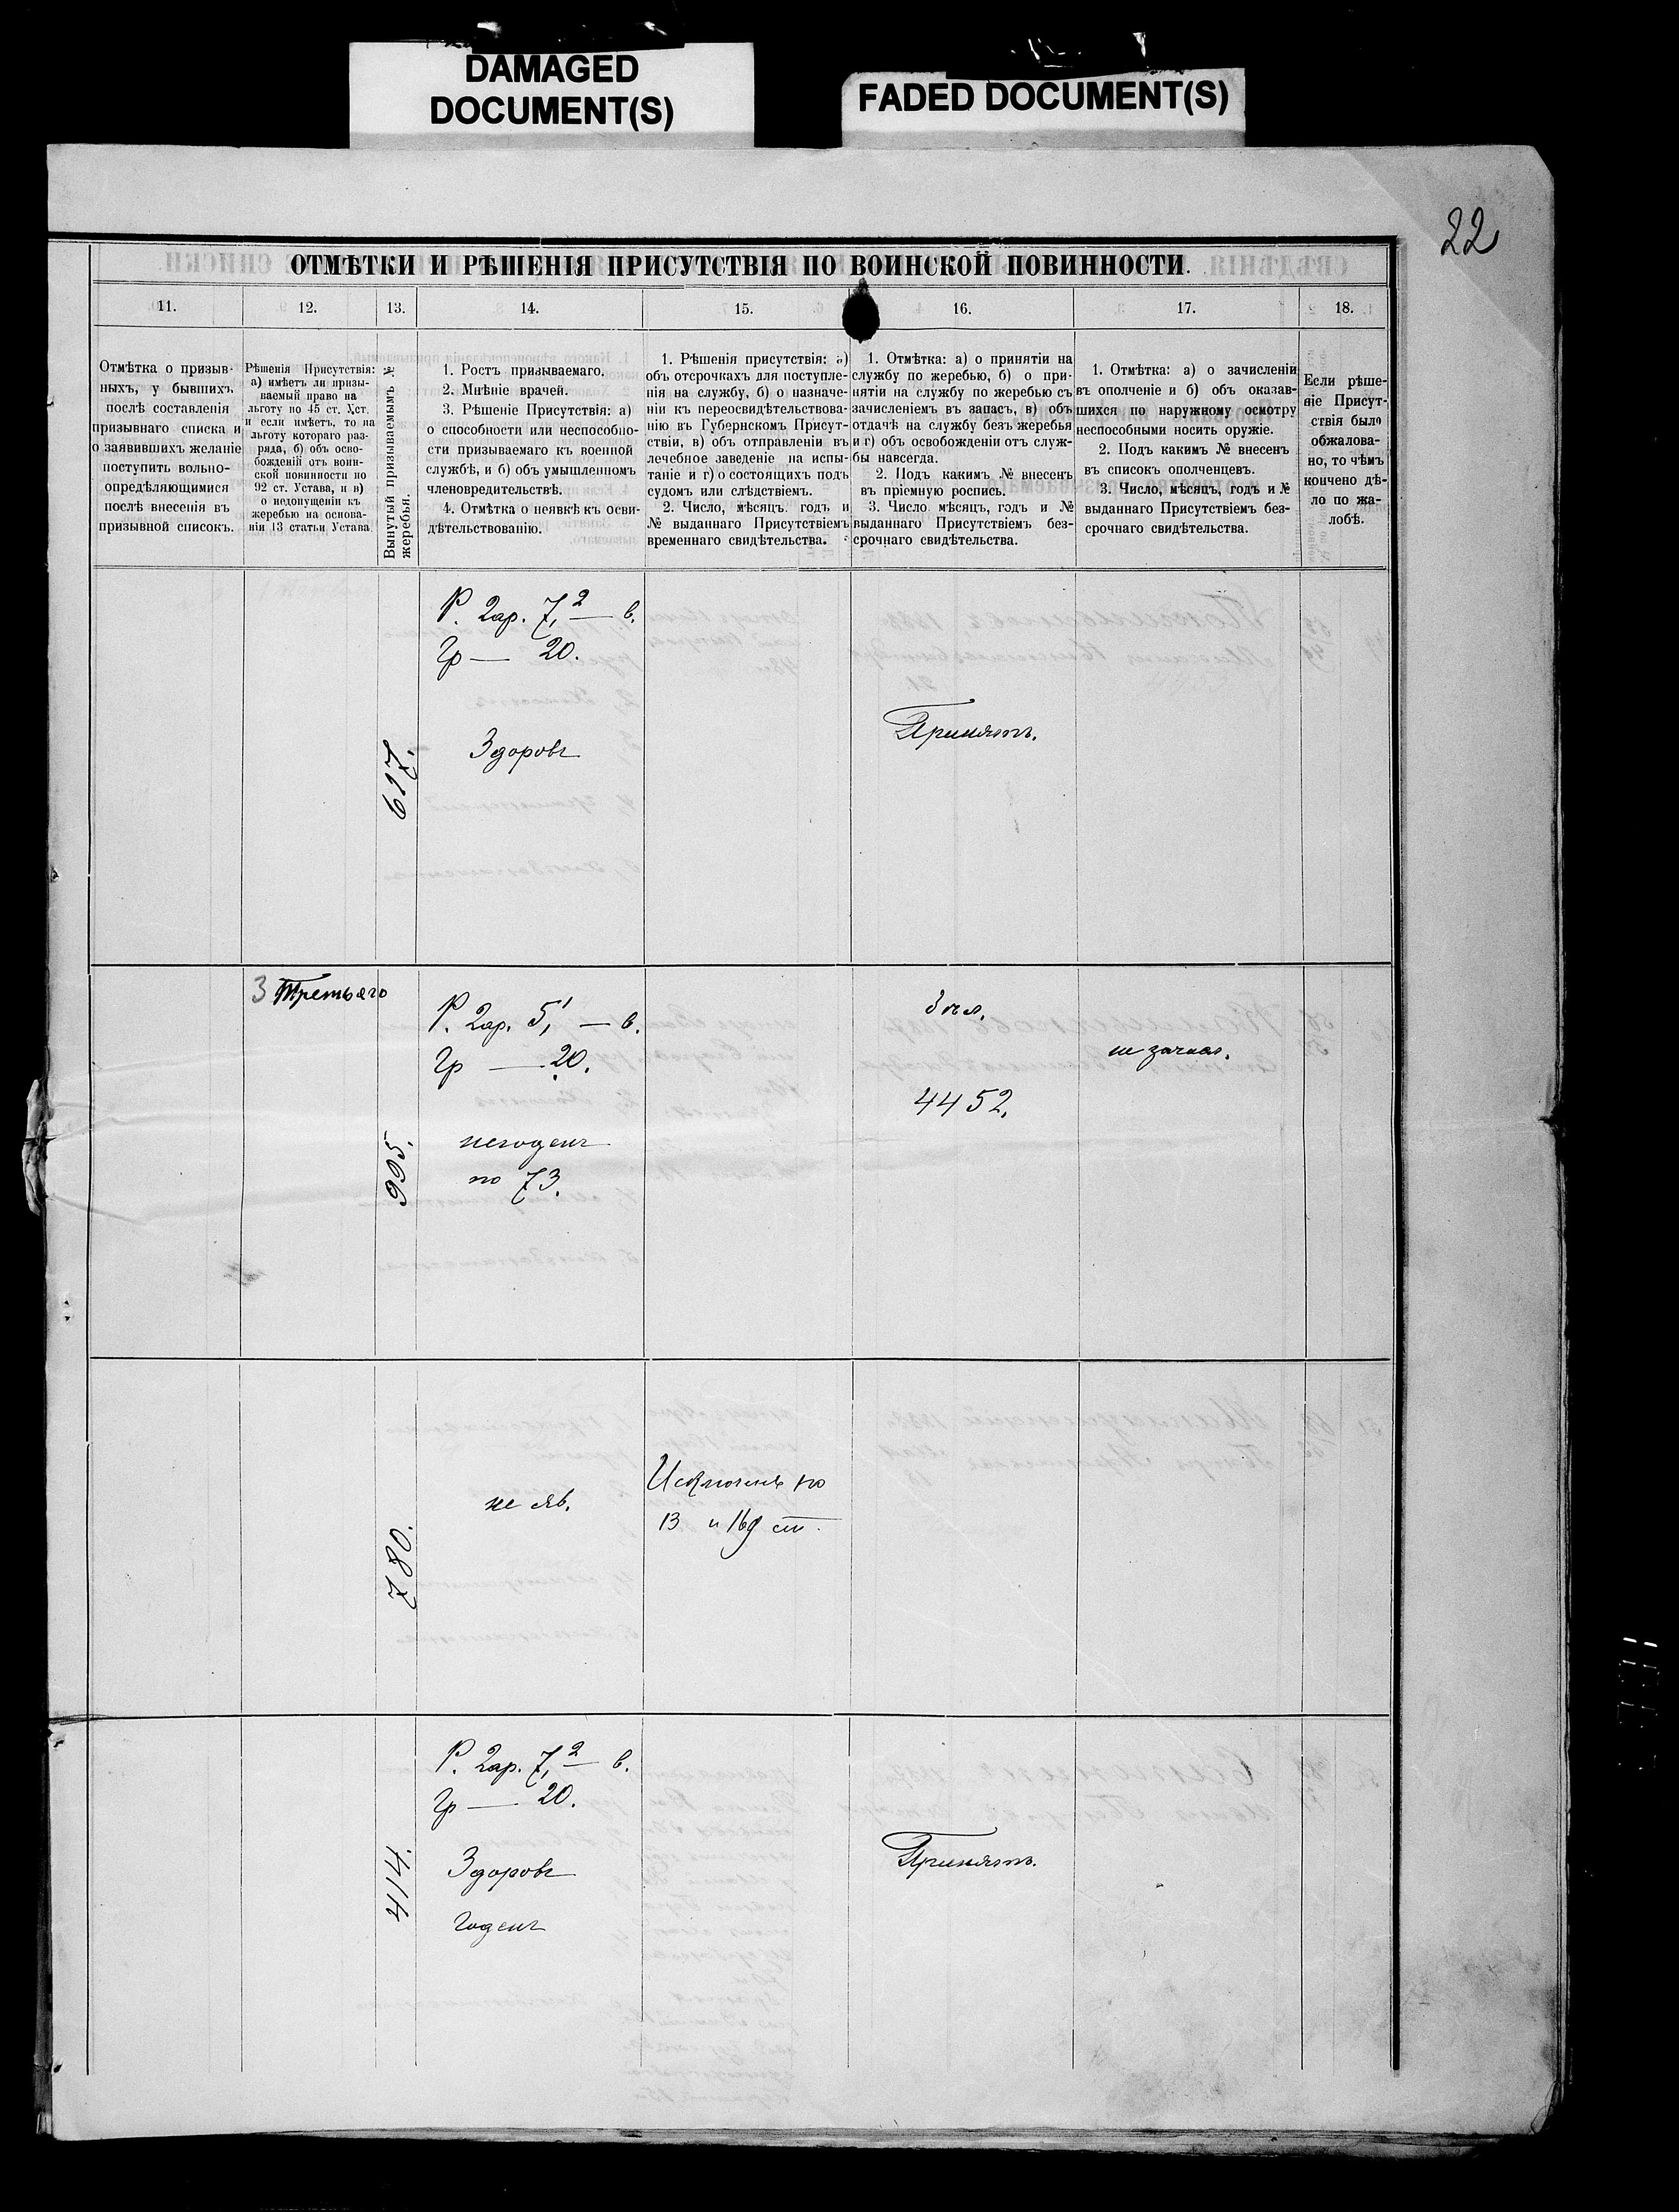 DAMAGED
DOCUMENT(S)
FADED DOCUMENT(S)
22
ОТМѢТКИ И РѢШЕНІЯ ПРИСУТСТВІЯ ПО ВОИНСКОЙ ПОВИННОСТИ.
11. 12. 13. 14. 15. 16. 17. 18.
Отмѣтка о призыв-
ныхъ, у бывшихъ,
послѣ составленія
призывнаго списка и
о заявившихъ желаніе
поступить вольно-
опредѣляющимися
послѣ внесенія въ
призывной списокъ.
Рѣшенія Присутствія:
а) имѣетъ ли призы-
ваемый право на
льготу по 45 ст. Уст.
и если имѣетъ, то на
льготу котораго раз-
ряда, б) объ осво-
божденіи отъ воин-
ской повинности по
92 ст. Устава, и в)
о недопущеніи къ
жеребью на основа-
ніи 13 статьи Устава
Вынутый призываемымъ №
жеребья.
1. Ростъ призываемаго.
2. Мнѣніе врачей.
3. Рѣшеніе Присутствія: а)
о способности или неспособно-
сти призываемаго къ военной
службѣ, и б) объ умышленномъ
членовредительствѣ.
4. Отмѣтка о неявкѣ къ осви-
дѣтельствованію.
1. Рѣшенія присутствія: а)
объ отсрочкахъ для поступле-
нія на службу, б) о назначе-
ніи къ переосвидѣтельствова-
нію въ Губернскомъ Присут-
ствіи, в) объ отправленіи въ
лечебное заведеніе на испы-
таніе и г) о состоящихъ подъ
судомъ или слѣдствіемъ.
2. Число, мѣсяцъ, годъ и
№ выданнаго Присутствіемъ
временнаго свидѣтельства.
1. Отмѣтка: а) о принятіи на
службу по жеребью, б) о при-
нятіи на службу по жеребью съ
зачисленіемъ въ запасъ, в) объ
отдачѣ на службу безъ жеребья
и г) объ освобожденіи отъ служ-
бы навсегда.
2. Подъ какимъ № внесенъ
въ пріемную роспись.
3. Число мѣсяцъ, годъ и №
выданнаго Присутствіемъ без-
срочнаго свидѣтельства.
1. Отмѣтка: а) о зачисленіи
въ ополченіе и б) объ оказав-
шихся по наружному осмотру
неспособными носить оружіе.
2. Подъ какимъ № внесенъ
въ списокъ ополченцевъ.
3. Число, мѣсяцъ, годъ и №
выданнаго Присутствіемъ без-
срочнаго свидѣтельства.
Если рѣше-
ніе Присут-
ствія было
обжалова-
но, то чѣмъ
кончено дѣ-
ло по жа-
лобѣ.
617.
Р. 2ар. 7,2 — в.
Гр — 20.
Здоровъ
Принятъ.
3 Третьяго
995.
Р. 2ар. 5,1 — в.
Гр — 20.
негоденъ
по 73.
4452.
не зачисл.
780.
не яв.
Исключенъ по
13 и 169 ст.
414.
Р. 2ар. 7,2 — в.
Гр — 20.
Здоровъ
Годенъ
Принятъ.